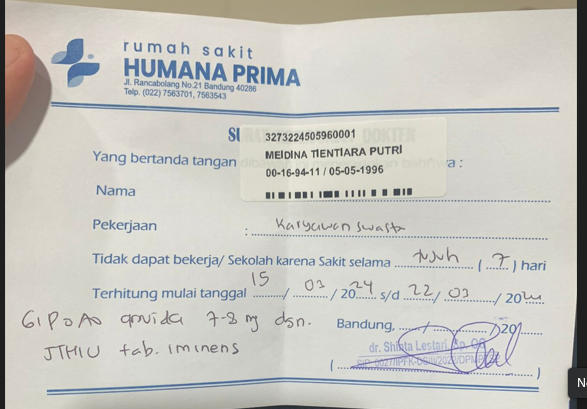 rumah sakit
HUMANA PRIMA
Jl. Rancabolang No.21 Bandung 40286
Telp. (022) 7563701, 7563543
SU DOKTER
3273224505960001
MEIDINA TIENTIARA PUTRI
00-16-94-11 / 05-05-1996
Yang bertanda tangan di a :
Nama
Pekerjaan : Karyawan swasta
Tidak dapat bekerja/ Sekolah karena Sakit selama tujuh ( 7 ) hari
Terhitung mulai tanggal 15 / 03 / 2024 s/d 22 / 03 / 2024
G1P0A0 gravida 7-8 mg dgn.
JTHIU + ab. iminens
Bandung, / 20
dr. Shinta Lestari, Sp. OG
( )
N